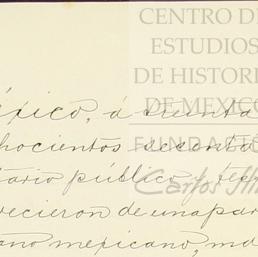 CENTRO DE
ESTUDIOS
DE HISTORI
DE MEXICO
FUNDACIÓ
Carlos Sli
éxico, á treinta
hocientos sesenta
tario público y tes
recieron de una par
ano mexicano, ma